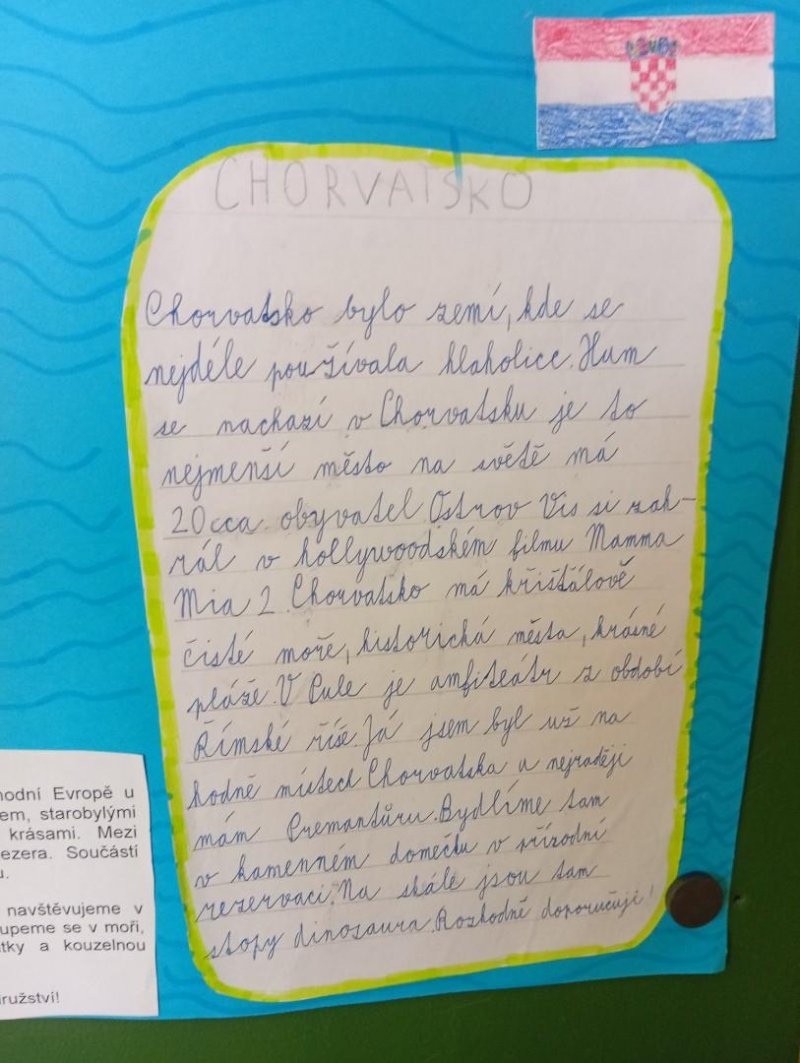 CHORVATSKO
Chorvatsko bylo zemí, kde se
nejdéle používala hlaholice. Hum
se nachazí v Chorvatsku je to
nejmenší město na světě má
20cca. obyvatel Ostrov Vis si zah-
rál v hollywoodském filmu Mamma
Mia 2. Chorvatsko má křišťálově
čisté moře, historická města, krásné
pláže. V Pule je amfiteátr z období
Římské říše. Já jsem byl už na
hodně místech Chorvatska a nejraději
mám Premantůru. Bydlíme tam
v kamenném domečku v přírodní
rezervaci. Na skále jsou tam
stopy dinosaura. Rozhodně doporučuji!
hodní Evropě u
em, starobylými
krásami. Mezi
ezera. Součástí
u.
navštěvujeme v
upeme se v moři,
átky a kouzelnou
ružství!